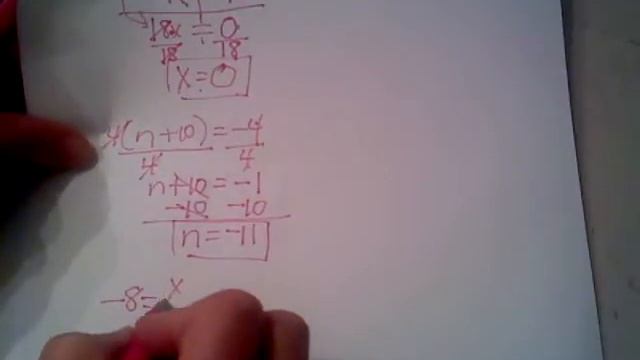 18x = 0
18 18
x = 0
4(n+10) = -4
4 4
n+10 = -1
-10 -10
n = -11
-8 = x